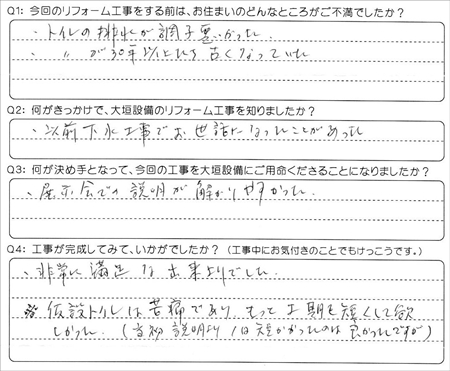 Q1: 今回のリフォーム工事をする前は、お住まいのどんなところがご不満でしたか?
・トイレの排水が調子悪かった
・　〃　が30年以上たち古くなっていた
Q2: 何がきっかけで、大垣設備のリフォーム工事を知りましたか?
・以前下水工事でお世話になったことがあった
Q3: 何が決め手となって、今回の工事を大垣設備にご用命くださることになりましたか?
・展示会での説明が解かりやすかった
Q4: 工事が完成してみて、いかがでしたか? (工事中にお気付きのことでもけっこうです。)
・非常に満足な出来上りでした
※仮設トイレは苦痛であり、もって工期を短くして欲
しかった。(当初説明より1日短かかったのは良かったんですが)